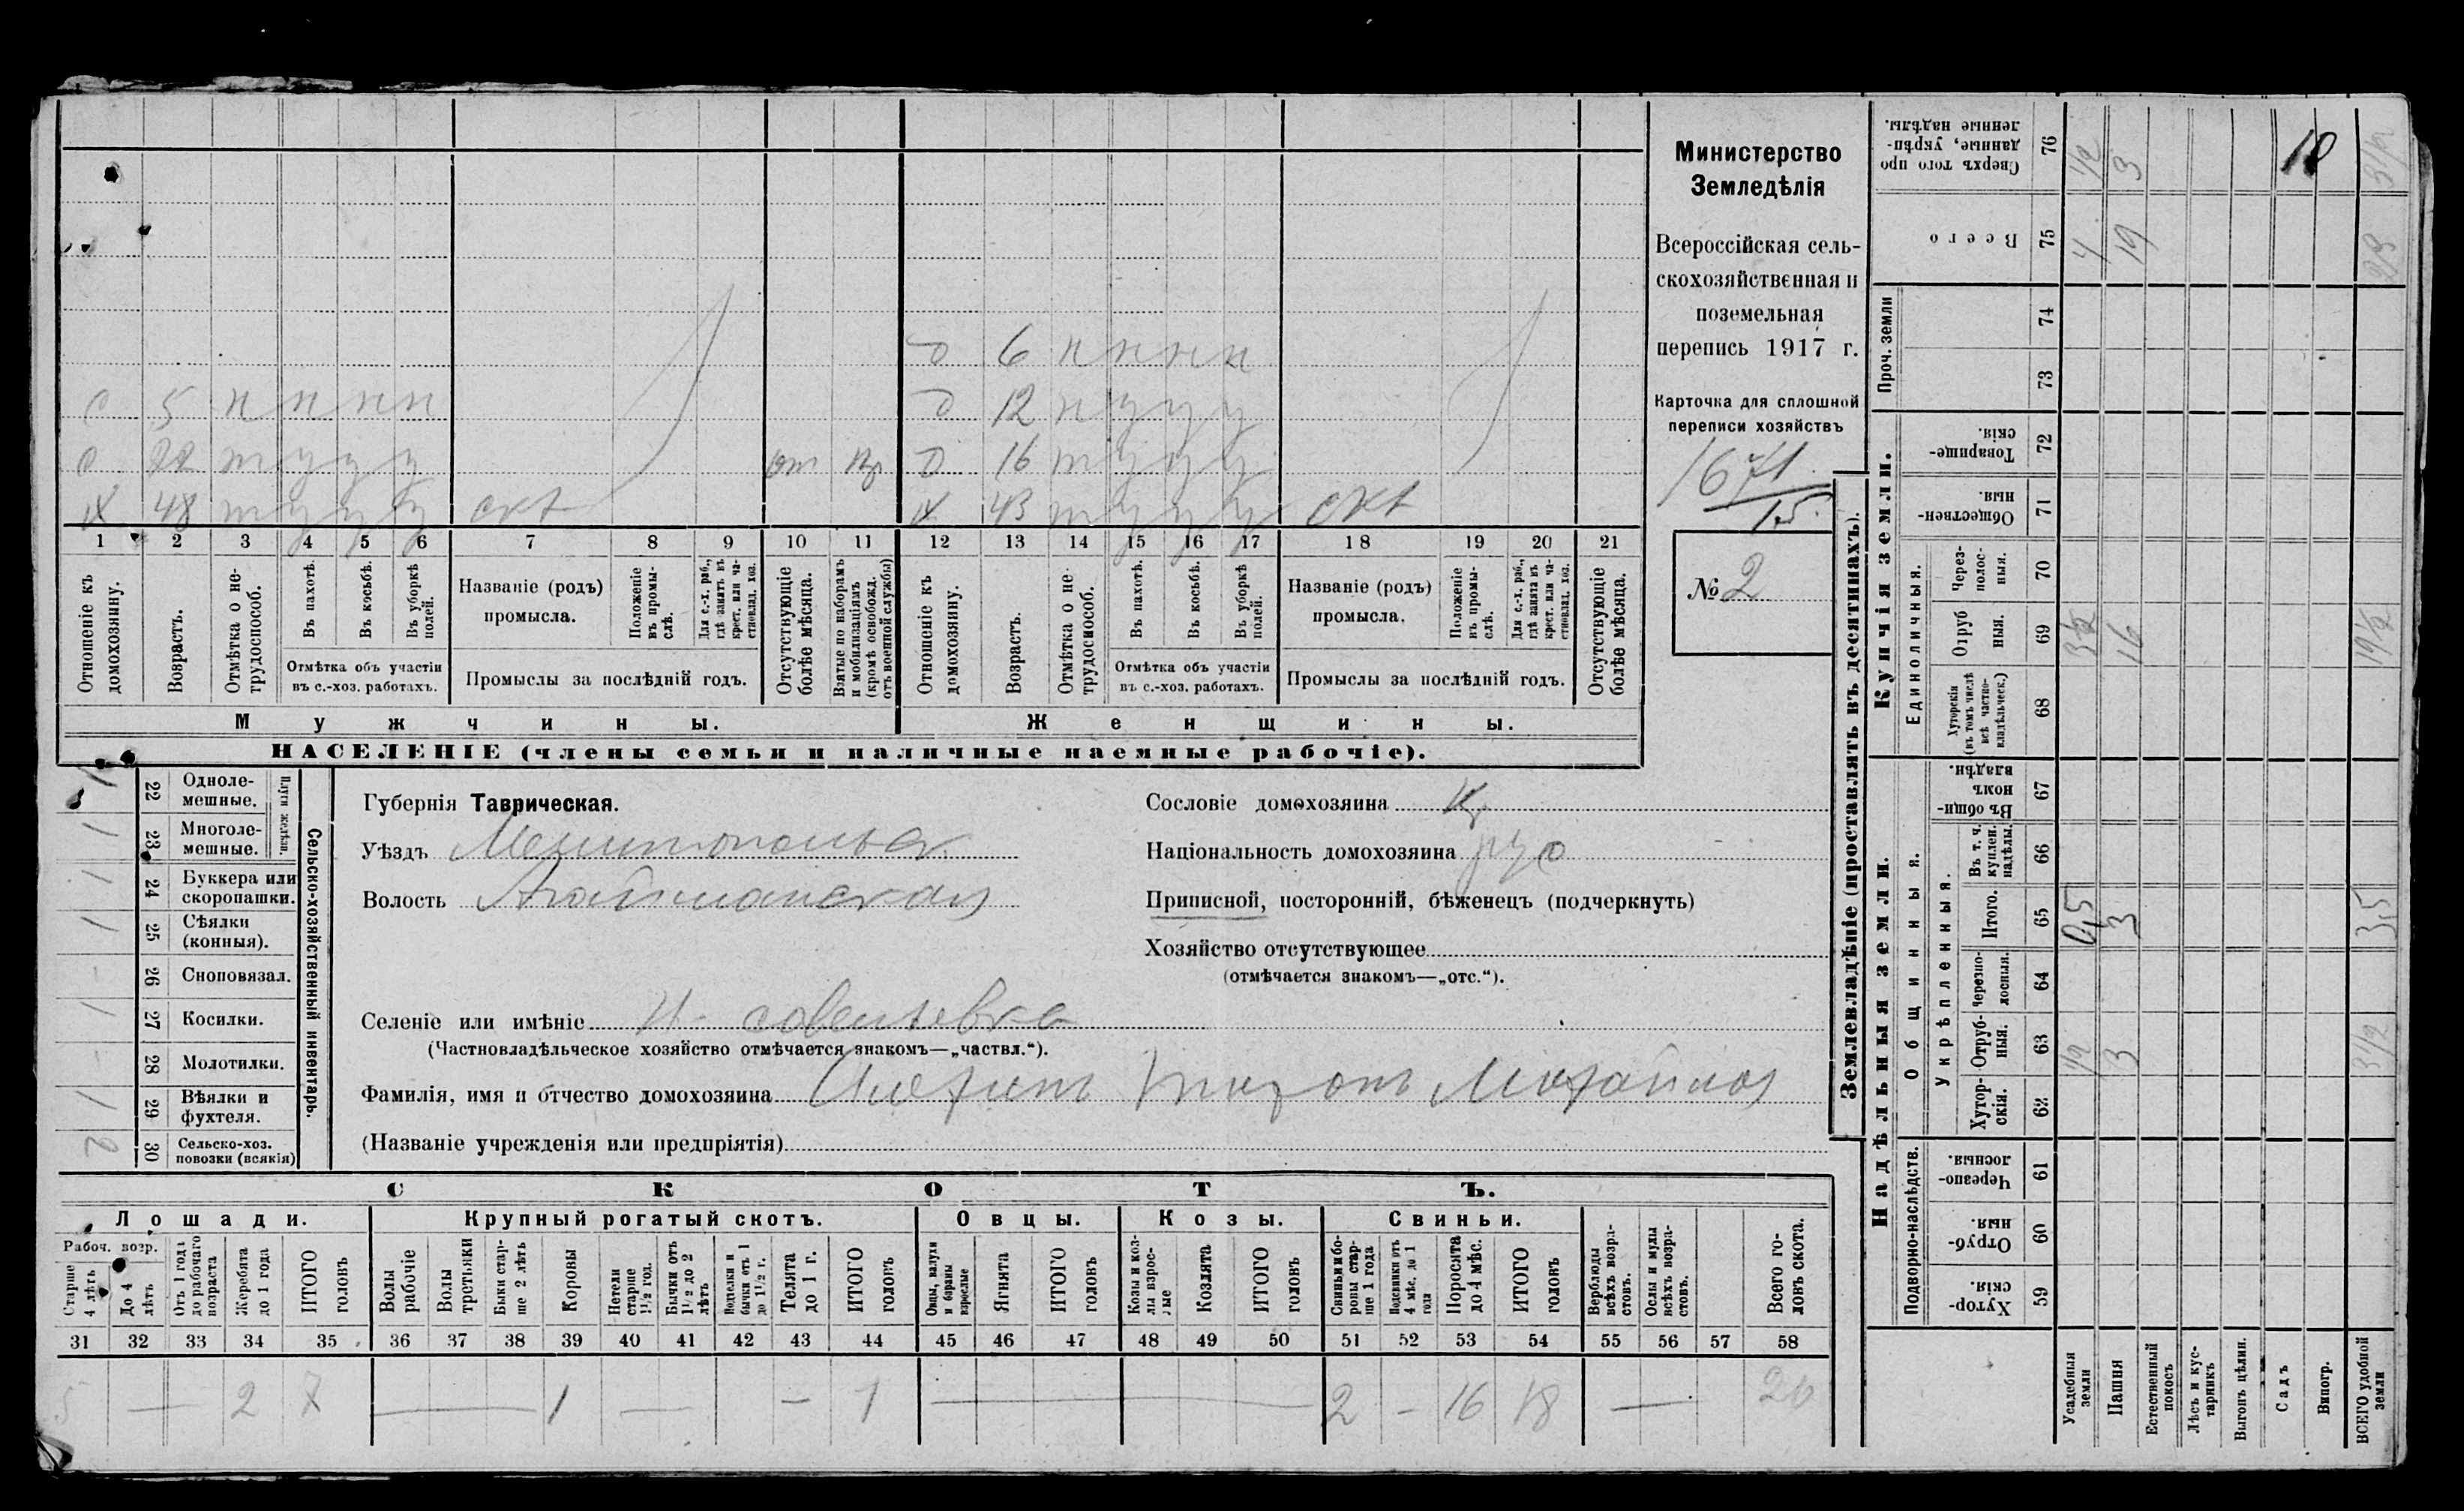 Министерство
Земледѣлія
Всероссійская сель-
скохозяйственная и
поземельная
перепись 1917 г.
Карточка для сплошной
переписи хозяйствъ
1671
15.
№ 2
д 6 н н н н
с 5 н н н н
д 12 н у у у
с 22 т у у у от
д 16 т у у у
х 48 т у у у скх
х 43 т у у у скх
1 2 3 4 5 6 7 8 9 10 11 12 13 14 15 16 17 18 19 20 21
Отношеніе къ домохозяину.
Возрастъ.
Отмѣтка о не-трудоспособ.
Въ пахотѣ.
Въ косьбѣ.
Въ уборкѣ полей.
Отмѣтка объ участіи
въ с.-хоз. работахъ.
Названіе (родъ)
промысла.
Положеніе въ промы-слѣ.
Для с.-х. раб., гдѣ занятъ въ крест. или ча-стновлад. хоз.
Промыслы за послѣдній годъ.
Отсутствующіе болѣе мѣсяца.
Взятые по наборамъ и мобилизаціямъ (кромѣ освобожд. отъ военной службы)
Отношеніе къ домохозяину.
Возрастъ.
Отмѣтка о не-трудоспособ.
Въ пахотѣ.
Въ косьбѣ.
Въ уборкѣ полей.
Отмѣтка объ участіи
въ с.-хоз. работахъ.
Названіе (родъ)
промысла.
Положеніе въ промы-слѣ.
Для с.-х. раб., гдѣ занята въ крест. или ча-стновлад. хоз.
Промыслы за послѣдній годъ.
Отсутствующіе болѣе мѣсяца.
Мужчины. Женщины.
НАСЕЛЕНІЕ (члены семьи и наличные наемные рабочіе).
Сельско-хозяйственный инвентарь.
Плуги желѣзн.
22 Одноле-мешные.
1 23 Многоле-мешные.
1 24 Буккера или скоропашки.
1 25 Сѣялки (конныя).
- 26 Сноповязал.
1 27 Косилки.
- 28 Молотилки.
1 29 Вѣялки и фухтеля.
2 30 Сельско-хоз. повозки (всякія)
Губернія Таврическая.
Уѣздъ Мелитопольск
Волость Агайманская
Сословіе домохозяина Кр
Національность домохозяина рус
Приписной, посторонній, бѣженецъ (подчеркнуть)
Хозяйство отсутствующее
(отмѣчается знакомъ—„отс.“).
Селеніе или имѣніе Н-савельевка
(Частновладѣльческое хозяйство отмѣчается знакомъ—„частвл.“).
Фамилія, имя и отчество домохозяина
(Названіе учрежденія или предпріятія)
СКОТЪ.
Лошади. Крупный рогатый скотъ. Овцы. Козы. Свиньи.
Рабоч. возр.
Старше 4 лѣтъ
До 4 лѣтъ
Отъ 1 года до рабочаго возраста
Жеребята до 1 года
ИТОГО головъ
Волы рабочіе
Волы третьяки
Быки стар-ше 2 лѣтъ
Коровы
Нетели старше 1½ год.
Бычки отъ 1½ до 2 лѣтъ
Подтелки и бычки отъ 1 до 1½ г.
Телята до 1 г.
ИТОГО головъ
Овцы, валухи и бараны взрослые
Ягнята
ИТОГО головъ
Козы и коз-лы взрос-лые
Козлята
ИТОГО головъ
Свиньи и бо-ровы стар-ше 1 года
Подсвинки отъ 4 мѣс. до 1 года
Поросята до 4 мѣс.
ИТОГО головъ
Верблюды всѣхъ возра-стовъ.
Ослы и мулы всѣхъ возра-стовъ.
Всего го-ловъ скота.
31 32 33 34 35 36 37 38 39 40 41 42 43 44 45 46 47 48 49 50 51 52 53 54 55 56 57 58
5 — 2 7 — 1 — - 1 — 2 - 16 18 — 26
Землевладѣніе (проставлять въ десятинахъ).
Купчія земли.
Надѣльныя земли.
Проч. земли
Единоличныя.
Общинныя.
Укрѣпленныя.
Подворно-наслѣдств.
76 Сверхъ того про-данные, укрѣп-ленные надѣлы. 1/2 3 3 1/2
75 Всего 4 19
74
73
72 Товарище-скія.
71 Обществен-ныя.
70 Через-полос-ныя.
69 Отруб ныя. 3 1/2 16 19 1/2
68 Хуторскія (въ томъ числѣ всѣ частно-владѣльческ.)
67 Въ общин-номъ владѣн.
66 Въ т. ч. куплен. надѣлы.
65 Итого. 0,5 3 3,5
64 Черезпо-лосныя.
63 Отруб-ныя. 1/2 3 3 1/2
62 Хутор-скія.
61 Черезпо-лосныя.
60 Отруб-ныя.
59 Хутор-скія.
Усадебныя земли
Пашня
Естественный покосъ
Лѣсъ и кус-тарникъ
Выгонъ цѣлин.
Садъ
Виногр.
ВСЕГО удобной земли